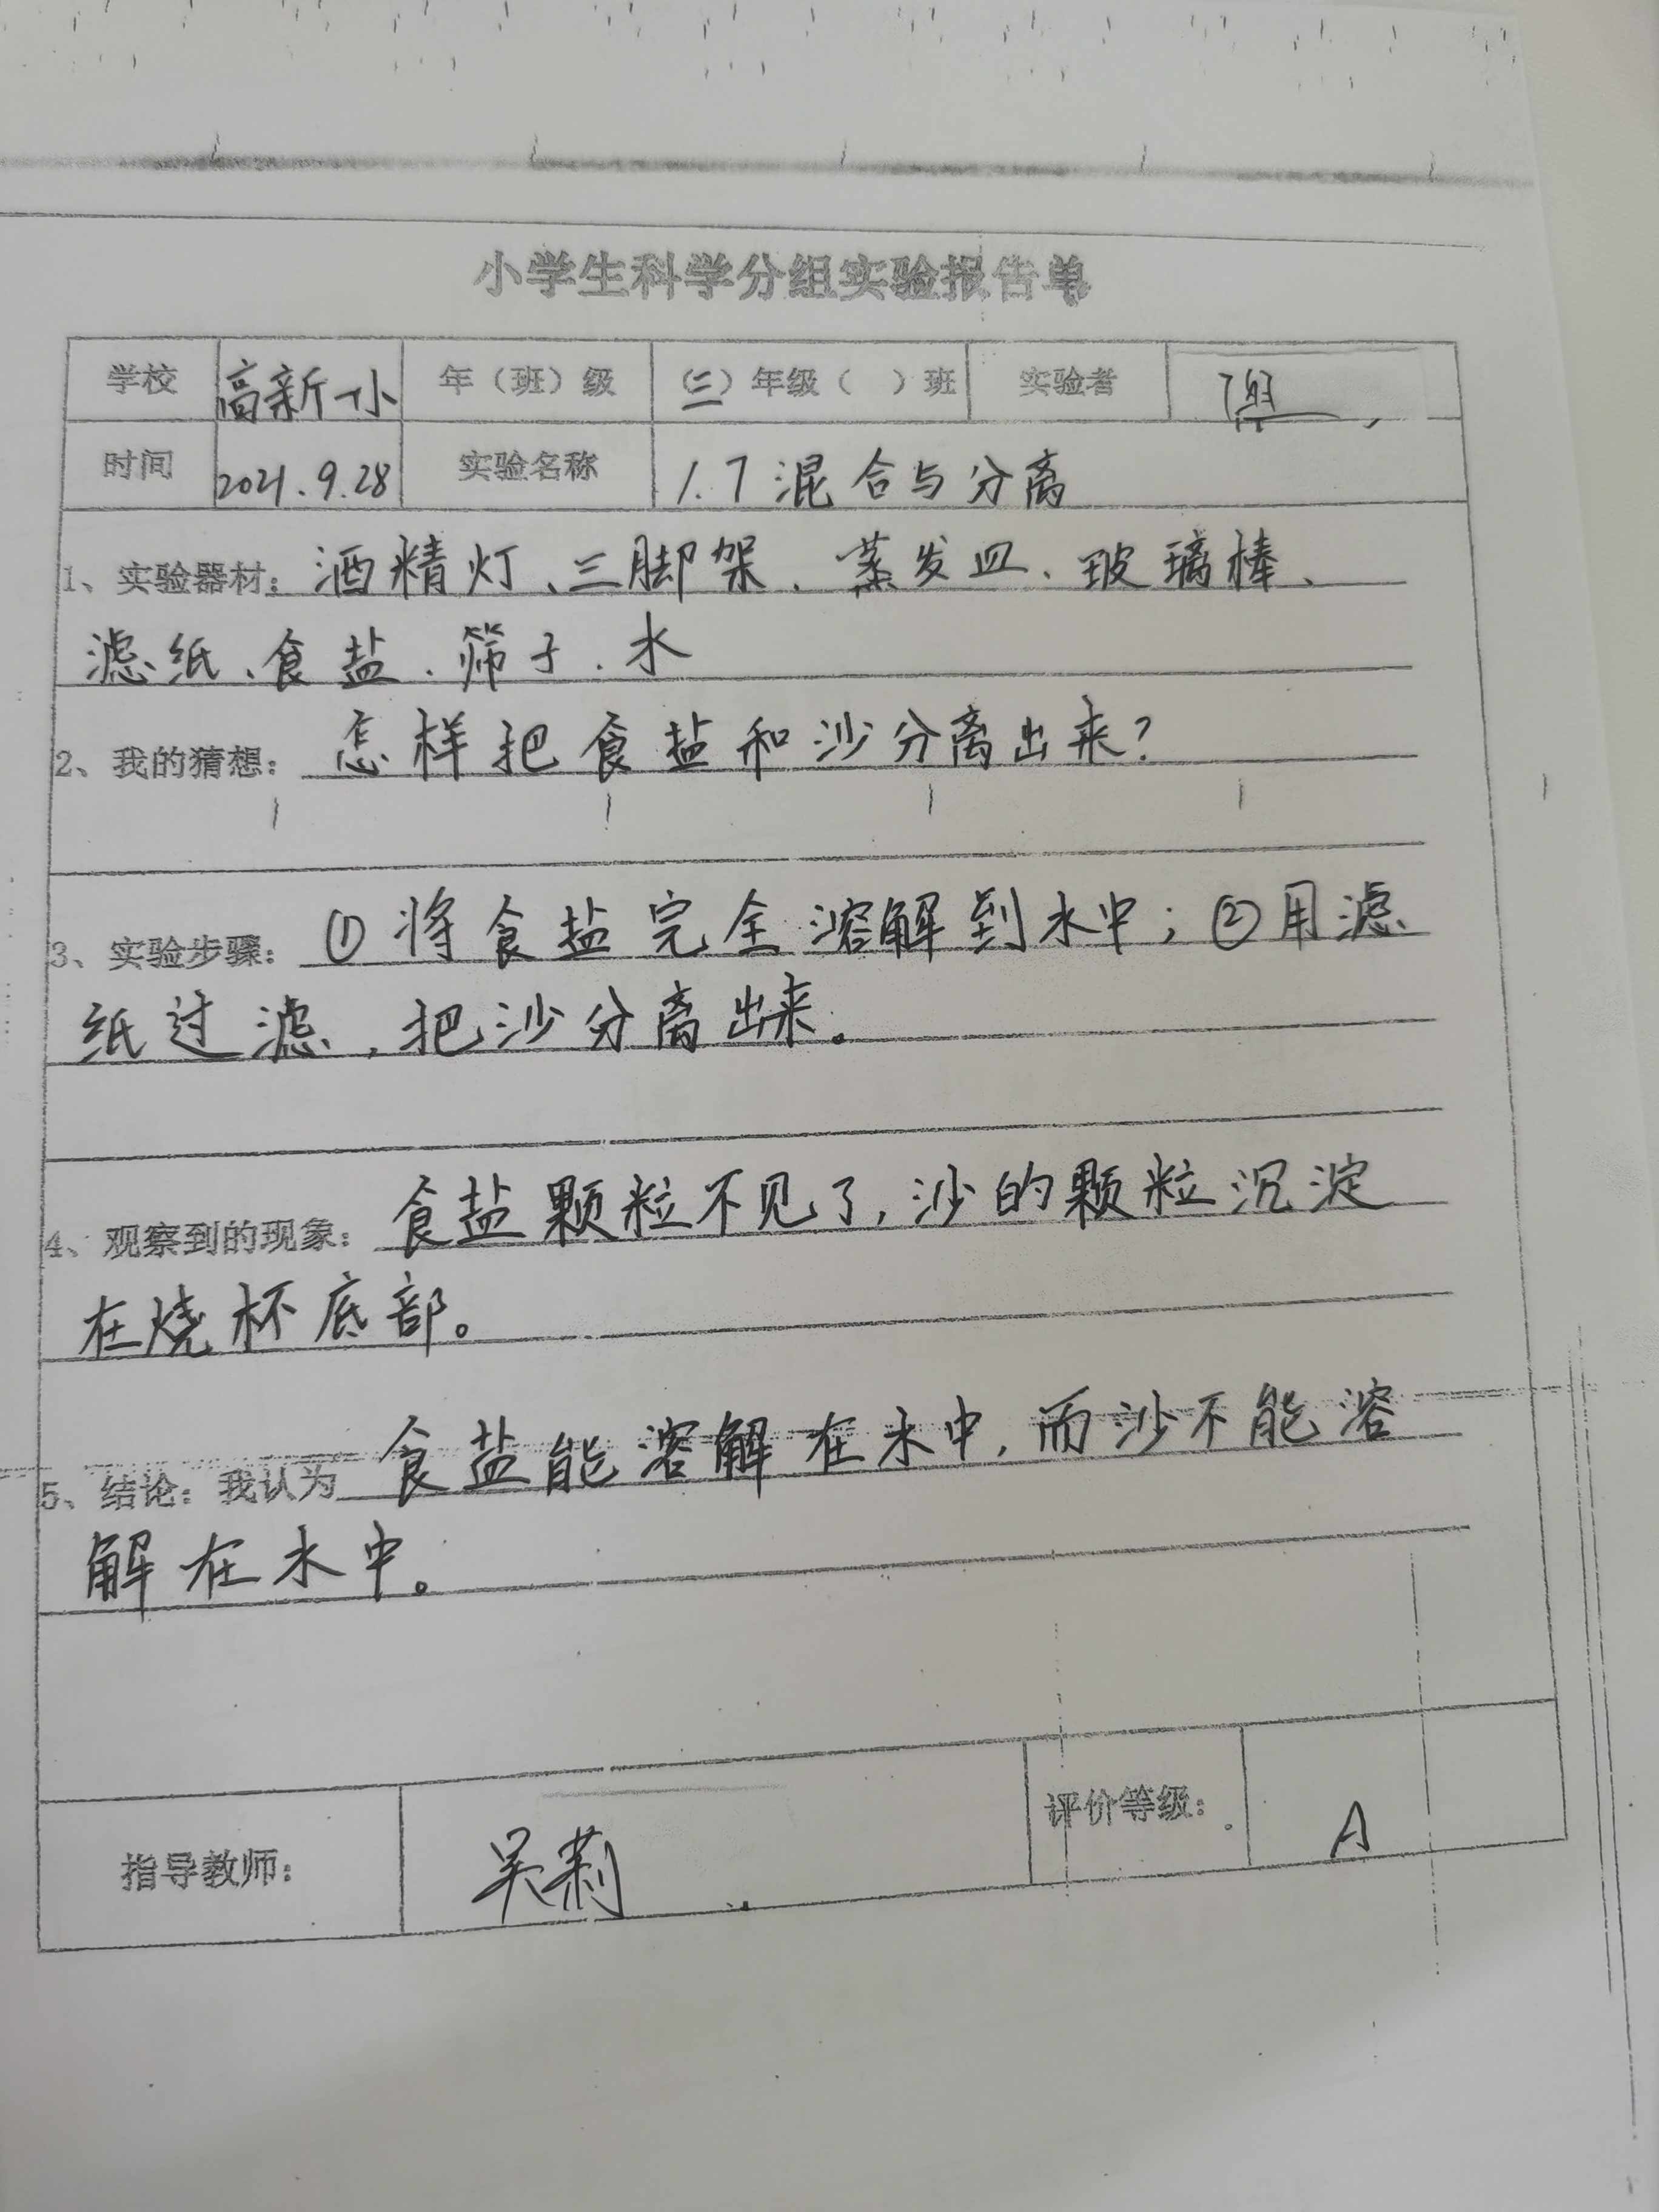 小学生科学分组实验报告单
学校 高新一小 年（班）级 （三）年级（ ）班 实验者
时间 2021.9.28 实验名称 1.7混合与分离
1、实验器材：酒精灯、三脚架、蒸发皿、玻璃棒、
滤纸、食盐、筛子、水
2、我的猜想：怎样把食盐和沙分离出来？
3、实验步骤：①将食盐完全溶解到水中；②用滤
纸过滤，把沙分离出来。
4、观察到的现象：食盐颗粒不见了，沙的颗粒沉淀
在烧杯底部。
5、结论：我认为 食盐能溶解在水中，而沙不能溶
解在水中。
指导教师： 吴莉 评价等级： A